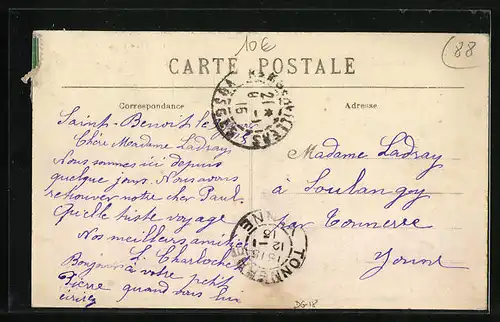 10€
88
CARTE POSTALE
Correspondance
Adresse
Saint-Benoit le
Chère Madame Ladray
Nous sommes ici depuis
quelque jours. Nous avons
retrouver notre cher Paul.
Quelle triste voyage
Nos meilleurs amitiés
L. Charlochet
Bonjours à votre petit
Pierre quand vous lui
écrirez
Madame Ladray
à Soulangy
par Tonnerre
Yonne
RAMBERVILLERS
VOSGES
TONNERRE
YONNE
DG-18